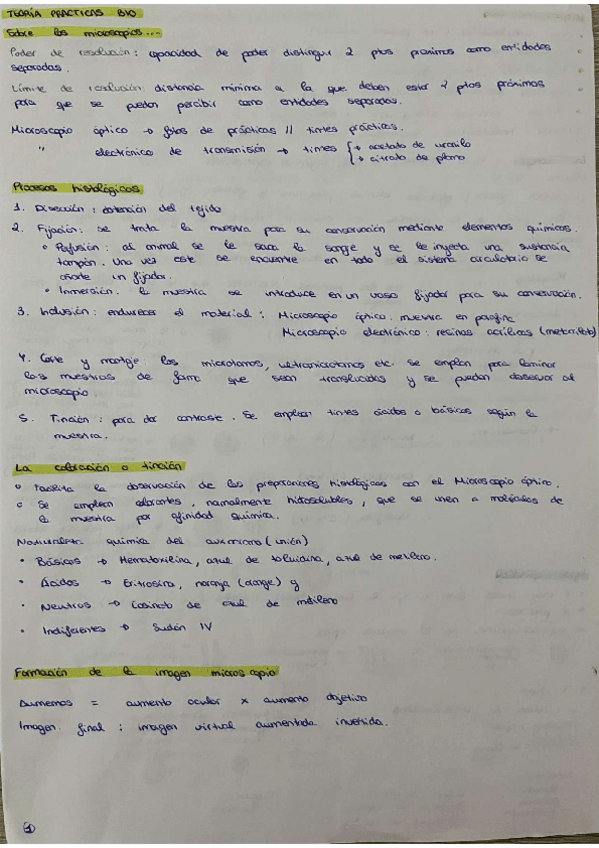 TEORÍA PRACTICAS BIO
Sobre los microscopios...
Poder de resolución: capacidad de poder distinguir 2 ptos proximos como entidades
separadas.
Límite de resolución: distancia mínima a la que deben estar 2 ptos próximos
para que se puedan percibir como entidades separadas.
Microscopio óptico → fotos de prácticas // tintes prácticas.
" electrónico de transmisión → tintes { → acetato de uranilo
→ citrato de plomo
Procesos histológicos
1. Disección: obtención del tejido
2. Fijación: se trata la muestra para su conservación mediante elementos químicos.
• Perfusión: al animal se le saca la sangre y se le inyecta una sustancia
tampón. Una vez este se encuentre en todo el sistema circulatorio se
añade un fijador.
• Inmersión: la muestra se introduce en un vaso fijador para su conservación.
3. Inclusión: endurecer el material: Microscopio óptico: muestra en parafina
Microscopio electrónico: resinas acrílicas
4. Corte y montaje: los microtomos, ultramicrotomos etc. se emplean para laminar
las muestras de forma que sean translucidas y se puedan observar al
microscopio.
5. Tinción: para dar contraste. Se emplean tintes ácidos o básicos según la
muestra.
La coloración o tinción
• Facilita la observación de las preparaciones histológicas con el Microscopio óptico.
• Se emplean colorantes, normalmente hidrosolubles, que se unen a moléculas de
la muestra por afinidad química.
Naturaleza química del auxocromo (unión)
• Básicos → Hematoxilina, azul de toluidina, azul de metileno.
• Ácidos → Eritrosina, naranja (orange) g
• Neutros → Eosinato de azul de metileno
• Indiferentes → Sudán IV
Formación de la imagen microscopio
Aumentos = aumento ocular x aumento objetivo
Imagen final: imagen virtual aumentada invertida.
1